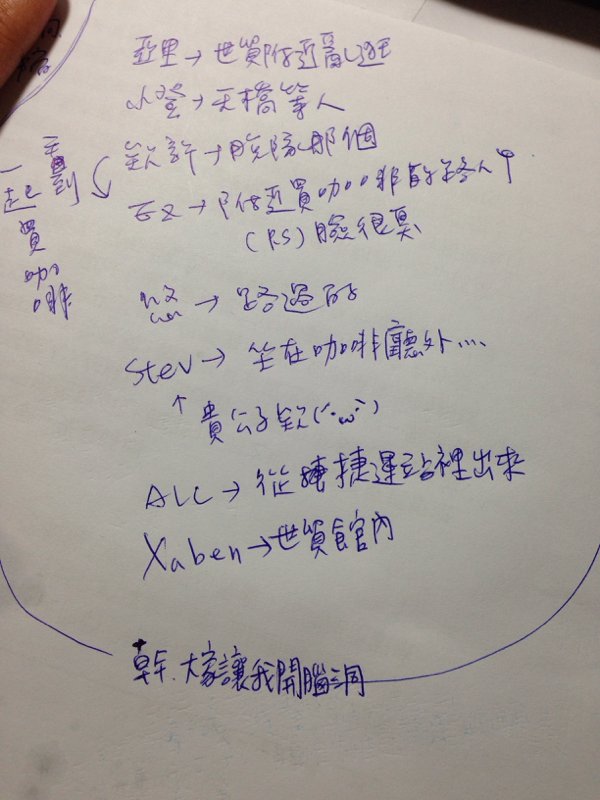 亞里→世貿附近亂逛
小登→天橋等人
欽許→脫隊那個
→附近買咖啡的路人
(RS)臉很臭
→路過的
Stev→坐在咖啡廳外....
↑
貴公子欸(´・ω・`)
ALC→從捷運站裡出來
Xaben→世貿館內
幹、大家讓我開腦洞
一起買咖啡